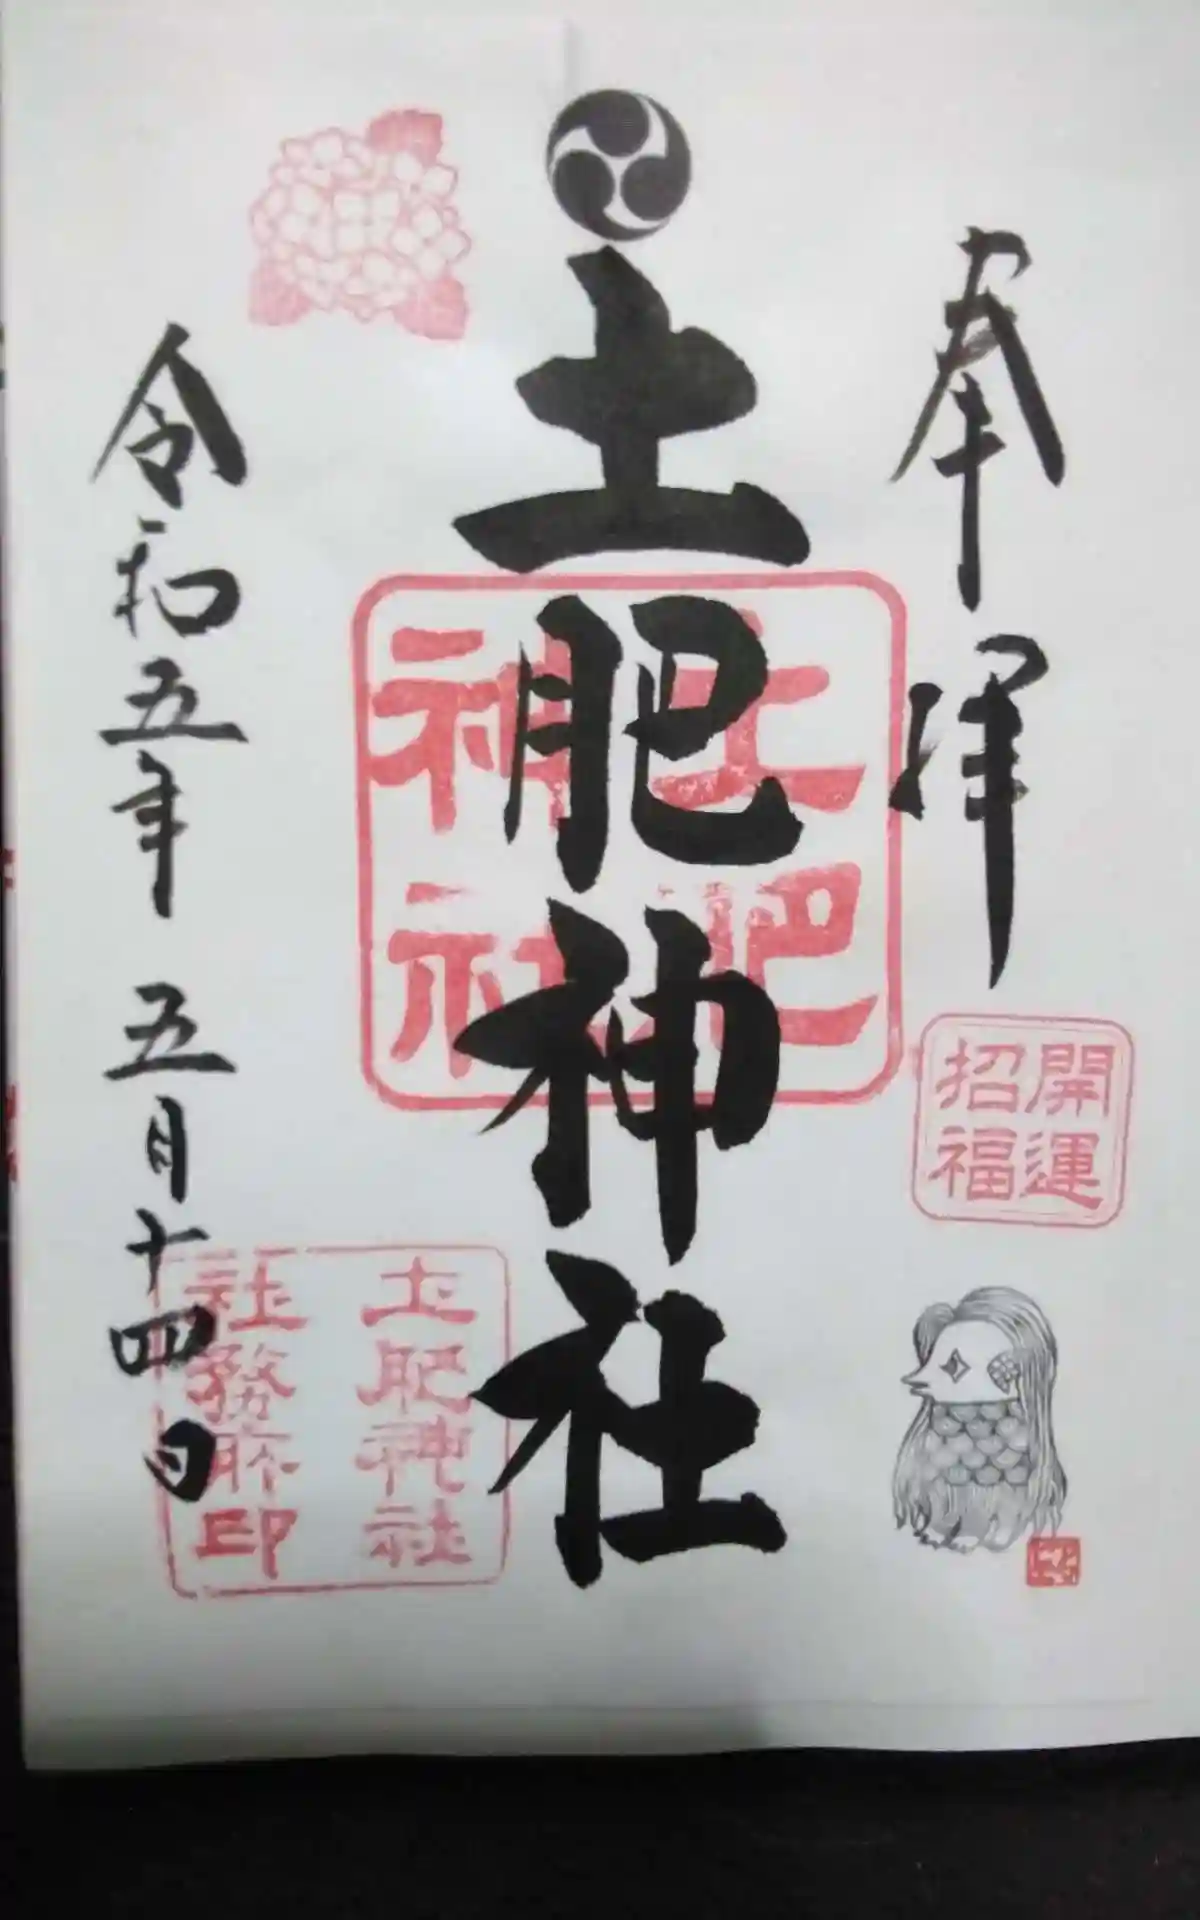 奉拝
開運
招福
土肥神社
土肥
神社
土肥神社
社務所印
令和五年五月十四日